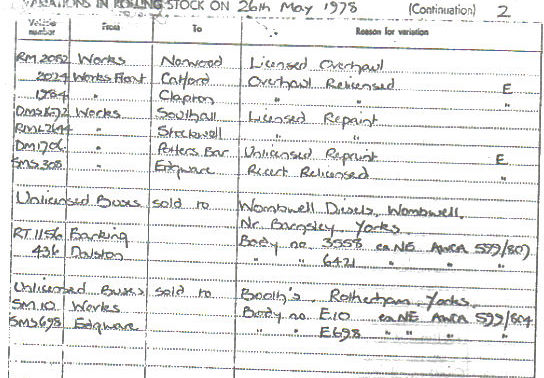 VARIATIONS IN ROLLING STOCK ON 26th May 1978 (Continuation) 2
Vehicle number From To Reason for variation
RM 2052 Works Norwood Licensed Overhaul
2024 Works Float Catford Overhaul Relicensed E
1984 " Clapton " " "
DMS 1672 Works Southall Licensed Repaint
RML 2644 " Stockwell " "
DM 1706 " Potters Bar Unlicensed Repaint E
SMS 308 " Edgware Recert Relicensed "
Unlicensed Buses sold to Wombwell Diesels, Wombwell,
Nr. Barnsley, Yorks.
RT 1156 Barking Body no. 3558 ex NE AWCA 599/807
436 Dalston " " 6421 " " "
Unlicensed Buses sold to Booth's, Rotherham, Yorks.
SM 10 Works Body no. E10 ex NE AWCA 599/804
SMS 698 Edgware " " E698 " " "